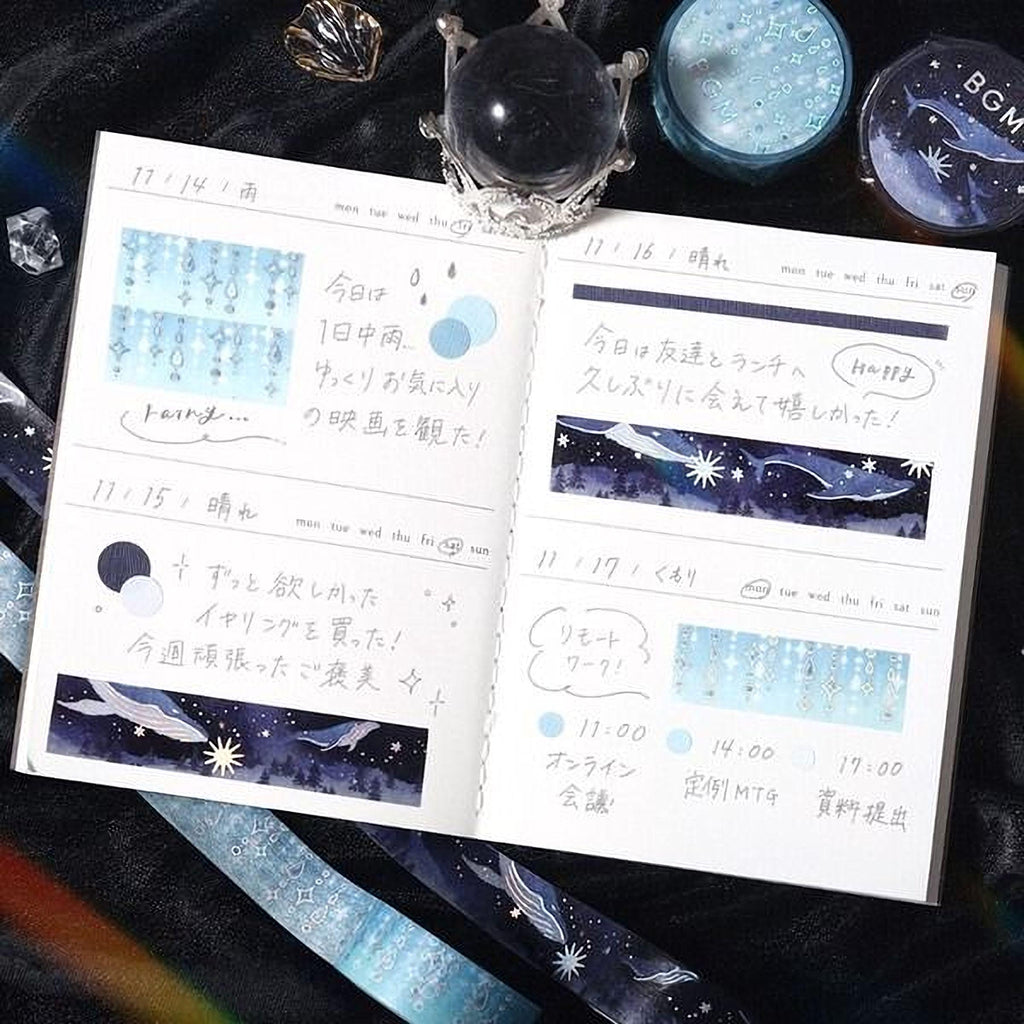 11 / 14 / 雨
mon tue wed thu fri
今日は
1日中雨...
ゆっくりお気に入り
の映画を観た!
rainy...
11 / 15 / 晴れ
mon tue wed thu fri sat sun
ずっと欲しかった
イヤリングを買った!
今週頑張ったご褒美
11 / 16 / 晴れ
mon tue wed thu fri sat sun
今日は友達とランチへ
久しぶりに会えて嬉しかった!
Happy
11 / 17 / くもり
mon tue wed thu fri sat sun
リモート
ワーク!
11:00
オンライン
会議!
14:00
定例MTG
17:00
資料提出
BGM
BGM